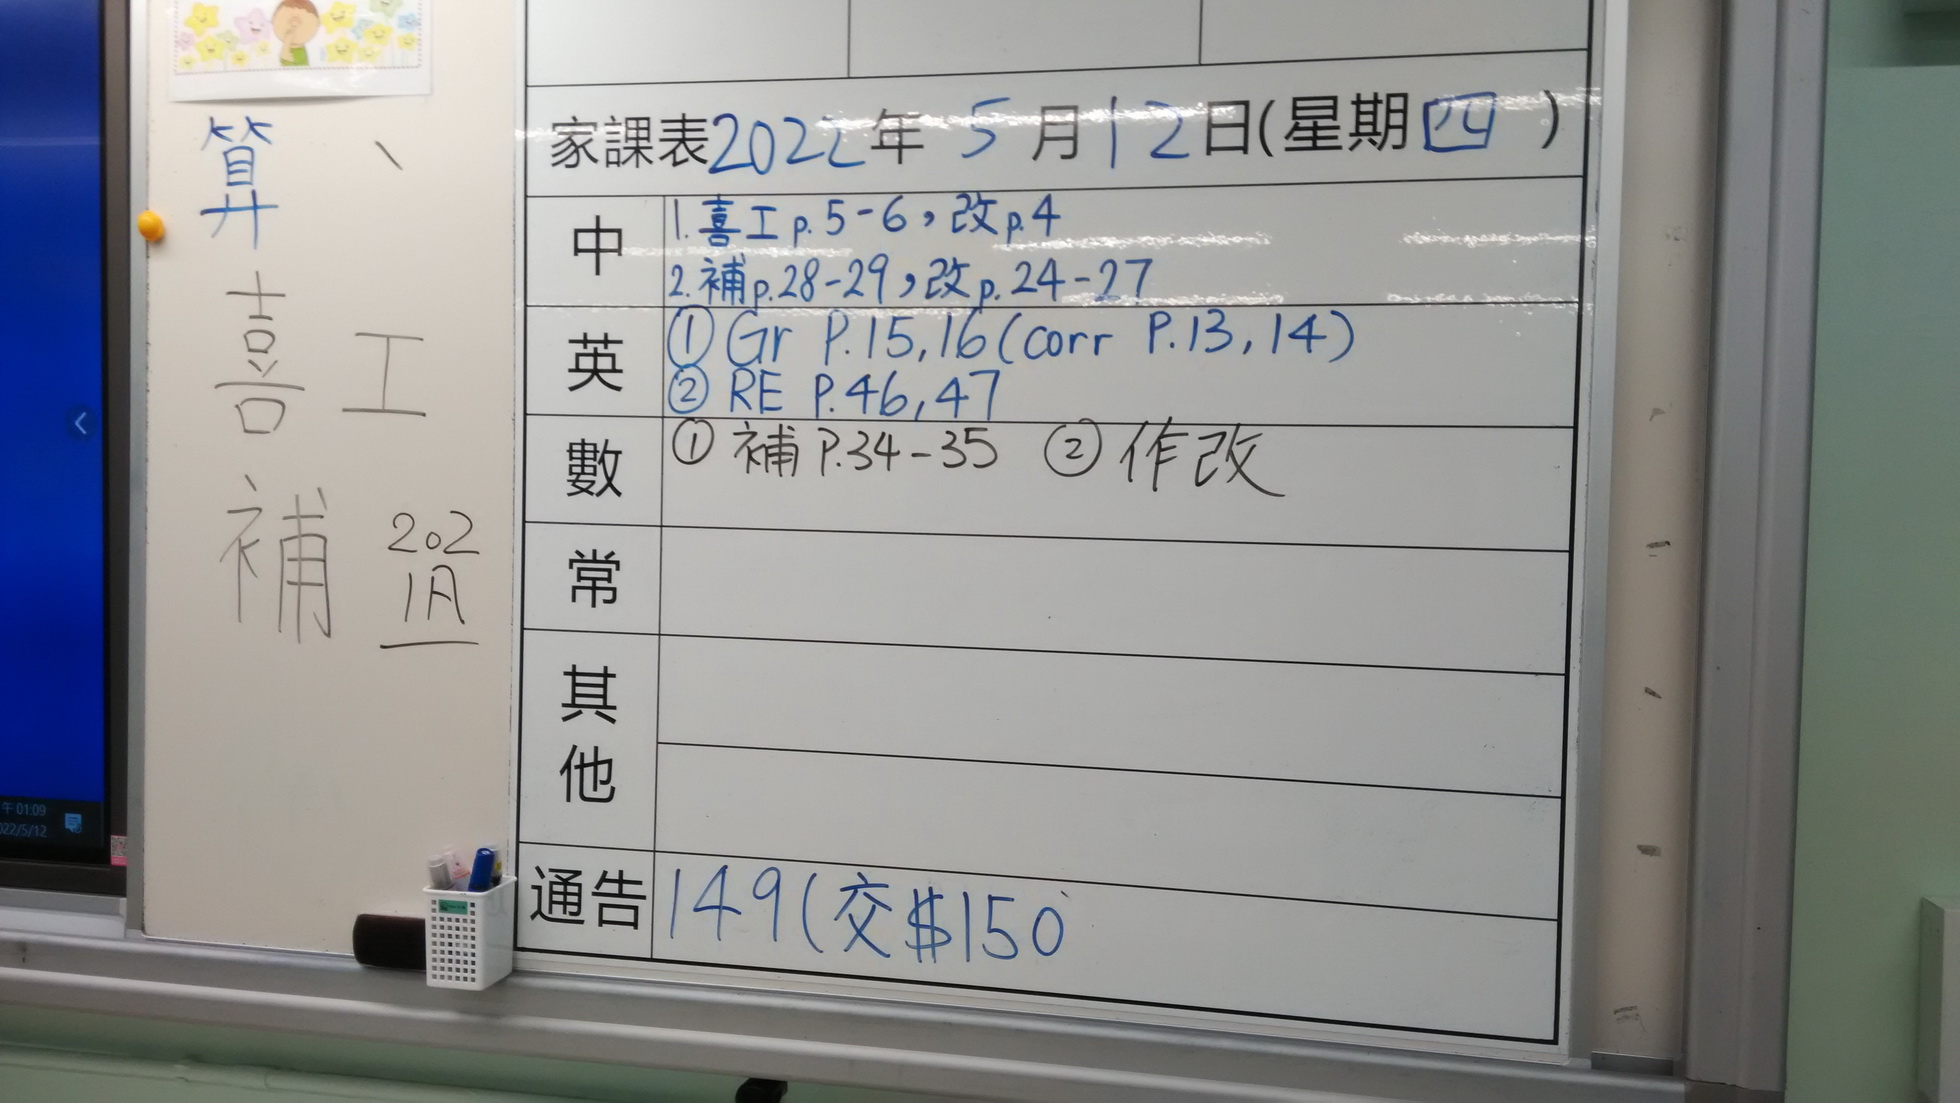 算
喜 工
補 202
1A
家課表2022年 5月12日(星期四)
中
1. 喜工p.5-6，改p.4
2. 補p.28-29，改p.24-27
英
① Gr P.15,16(corr P.13,14)
② RE P.46,47
數
① 補P.34-35 ② 作改
常
其他
通告
149(交$150
午 01:09
022/5/12